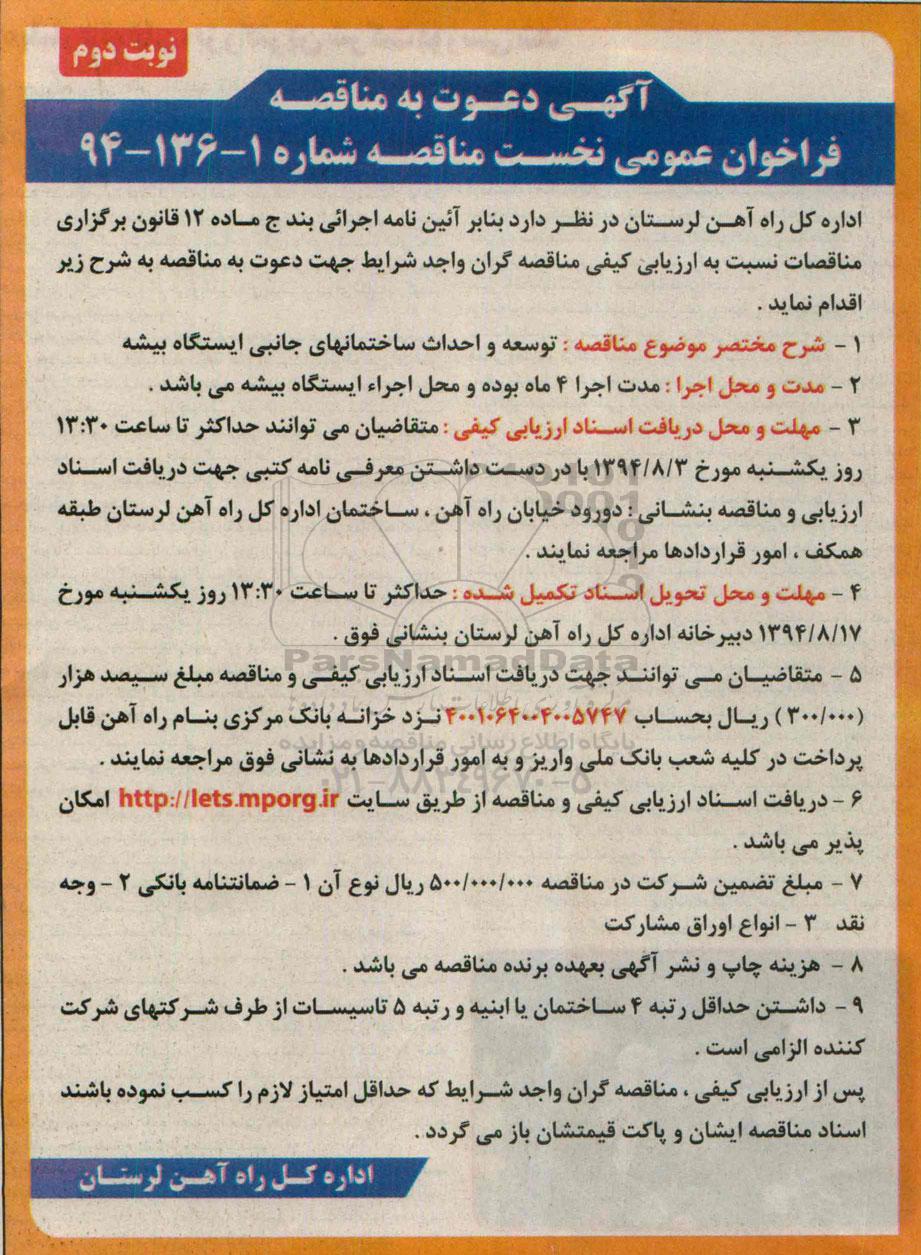 نوبت دوم
آگهی دعوت به مناقصه
فراخوان عمومی نخست مناقصه شماره ۱-۱۳۶-۹۴
اداره کل راه آهن لرستان در نظر دارد بنابر آئین نامه اجرائی بند ج ماده ۱۲ قانون برگزاری
مناقصات نسبت به ارزیابی کیفی مناقصه گران واجد شرایط جهت دعوت به مناقصه به شرح زیر
اقدام نماید .
۱ - شرح مختصر موضوع مناقصه : توسعه و احداث ساختمانهای جانبی ایستگاه بیشه
۲ - مدت و محل اجرا : مدت اجرا ۴ ماه بوده و محل اجراء ایستگاه بیشه می باشد .
۳ - مهلت و محل دریافت اسناد ارزیابی کیفی : متقاضیان می توانند حداکثر تا ساعت ۱۳:۳۰
روز یکشنبه مورخ ۱۳۹۴/۸/۳ با در دست داشتن معرفی نامه کتبی جهت دریافت اسناد
ارزیابی و مناقصه بنشانی : دورود خیابان راه آهن ، ساختمان اداره کل راه آهن لرستان طبقه
همکف ، امور قراردادها مراجعه نمایند .
۴ - مهلت و محل تحویل اسناد تکمیل شده : حداکثر تا ساعت ۱۳:۳۰ روز یکشنبه مورخ
۱۳۹۴/۸/۱۷ دبیرخانه اداره کل راه آهن لرستان بنشانی فوق .
ParsNamadData
۵ - متقاضیان می توانند جهت دریافت اسناد ارزیابی کیفی و مناقصه مبلغ سیصد هزار
(۳۰۰/۰۰۰ ) ریال بحساب ۴۰۰۱۰۶۴۰۰۴۰۰۵۷۴۷ نزد خزانه بانک مرکزی بنام راه آهن قابل
پایگاه اطلاع رسانی مناقصه و مزایده
پرداخت در کلیه شعب بانک ملی واریز و به امور قراردادها به نشانی فوق مراجعه نمایند .
۰۲۱-۸۸۳۴۹۶۷۰-۵
۶ - دریافت اسناد ارزیابی کیفی و مناقصه از طریق سایت http://lets.mporg.ir امکان
پذیر می باشد .
۷ - مبلغ تضمین شرکت در مناقصه ۵۰۰/۰۰۰/۰۰۰ ریال نوع آن ۱ - ضمانتنامه بانکی ۲ - وجه
نقد ۳ - انواع اوراق مشارکت
۸ - هزینه چاپ و نشر آگهی بعهده برنده مناقصه می باشد .
۹ - داشتن حداقل رتبه ۴ ساختمان یا ابنیه و رتبه ۵ تاسیسات از طرف شرکتهای شرکت
کننده الزامی است .
پس از ارزیابی کیفی ، مناقصه گران واجد شرایط که حداقل امتیاز لازم را کسب نموده باشند
اسناد مناقصه ایشان و پاکت قیمتشان باز می گردد .
اداره کل راه آهن لرستان